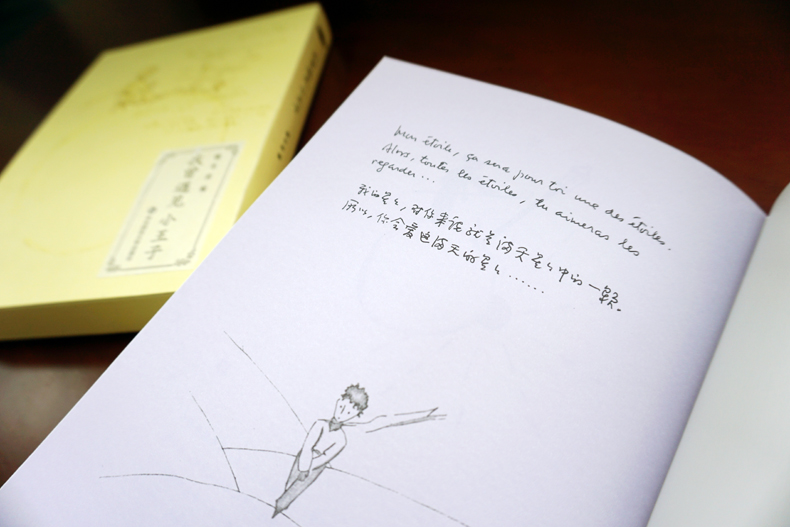 Mon étoile, ça sera pour toi une des étoiles.
Alors, toutes les étoiles, tu aimeras les
regarder...
我的星星,对你来说就是满天星星中的一颗。
所以,你会爱这满天的星星……
小王子